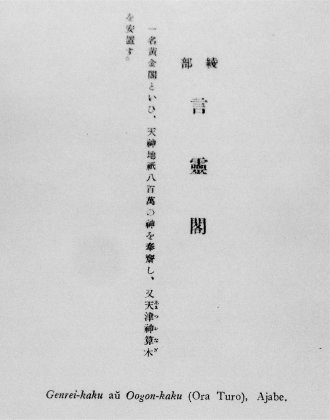 綾部
言靈閣
一名黄金閣といひ、天神地祇八百萬の神を奉齋し、又天津神算木
を安置す。
Genrei-kaku aŭ Oogon-kaku (Ora Turo), Ajabe.